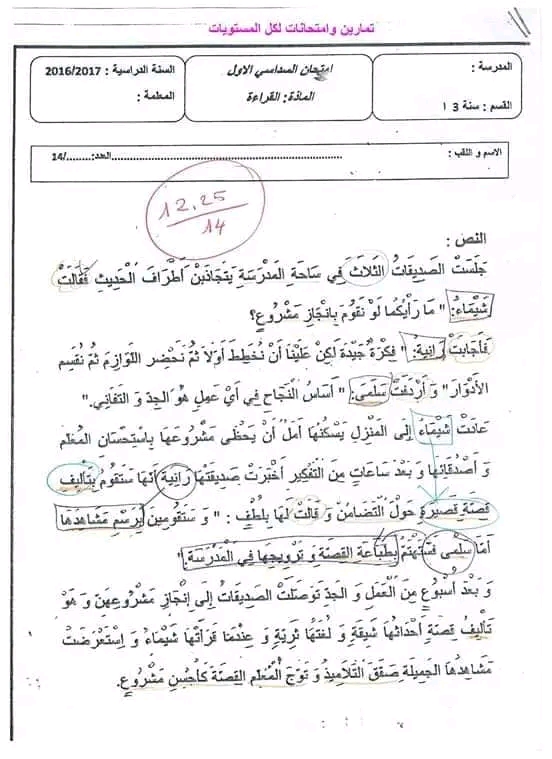 تمارين وامتحانات لكل المستويات
المدرسة :
القسم : سنة 3 ا
امتحان السداسي الاول
المادة: القراءة
السنة الدراسية : 2016/2017
المعلمة :
الاسم و اللقب :........................................العدد:......../14
12.25
14
النص :
جَلَسَتْ الصَدِيقَاتُ الثَلَاثَ فِي سَاحَةِ المَدْرَسَةِ يَتَجَاذَبْنَ أَطْرَافَ الْحَدِيثِ فَقَالَتْ
شَيْمَاءُ: " مَا رَأْيُكُمَا لَوْ نَقُومُ بِانْجَازِ مَشْرُوعٍ؟
فَأَجَابَتْ رَانِيَةُ: " فِكْرَةٌ جَيِّدَةٌ لَكِنْ عَلَيْنَا أَنْ نُخَطِطَ أَوَلاً ثُمَّ نَحْضِر اللَوَازِمَ ثُمَّ نُقَسِم
الأَدْوَارَ " وَ أَرْدَفَتْ سَلْمَى: " أَسَاسُ النَجَاحِ فِي أَيْ عَمَلٍ هُوَ الجِدَ وَ التَفَانِي."
عَادَتْ شَيْمَاءُ إِلَى المَنْزِلِ يَسْكُنُهَا أَمَلُ أَنْ يَحْظَى مَشْرُوعُهَا بِاسْتِحْسَانِ المُعَلِمِ
وَ أَصْدِقَائِهَا وَ بَعْدَ سَاعَاتٍ مِنَ التَفْكِيرِ أَخْبَرَتْ صَدِيقَتَهَا رَانِيَة أَنَهَا سَتَقُومُ بِتَأْلِيفِ
قِصَةٍ قَصِيرَةٍ حَوْلَ التَضَامُنْ وَ قَالَتْ لَهَا بِلُطْفٍ : " وَ سَتَقُومِينَ بِرَسْمِ مَشَاهِدِهَا
أَمَا سَلْمَى فَسَتَهْتَمُ بِطِبَاعَةِ القِصَةِ وَ تَرْوِيجِهَا فِي المَدْرَسَةِ."
وَ بَعْدَ أُسْبُوعٍ مِنَ العَمَلِ وَ الجِدَ تَوَصَلَتْ الصَدِيقَاتُ إِلَى إِنْجَازِ مَشْرُوعِهِنَ وَ هُوَ
تَأْلِيفُ قِصَةٍ أَحْدَاثُهَا شَيِقَةٌ وَ لُغَتُهَا ثَرِيَةٌ وَ عِنْدَمَا قَرَأَتْهَا شَيْمَاءُ وَ اِسْتَعْرَضَتْ
مَشَاهِدَهَا الجَمِيلَةِ صَفَقَ التَلَامِيذُ وَ تَوَجَ الْمُعَلِمِ القِصَةَ كَأَحْسَنِ مَشْرُوعٍ.